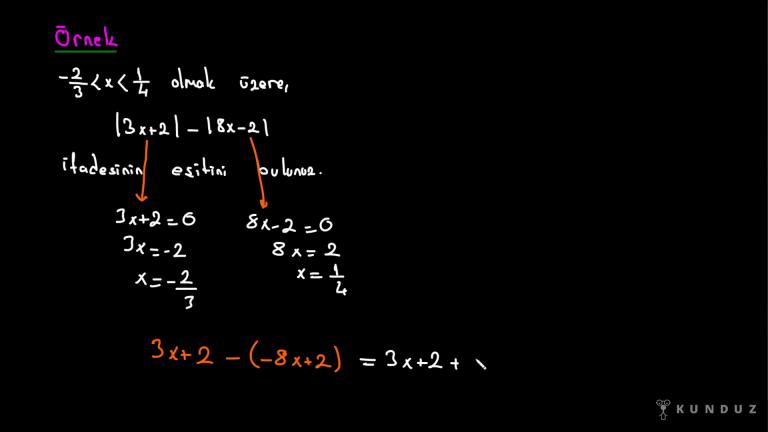 Örnek
-2/3 < x < 1/4 olmak üzere,
|3x+2| - |8x-2|
ifadesinin eşitini bulunuz.
3x+2=0 8x-2=0
3x=-2 8x=2
x=-2/3 x=1/4
3x+2 - (-8x+2) = 3x+2+
KUNDUZ